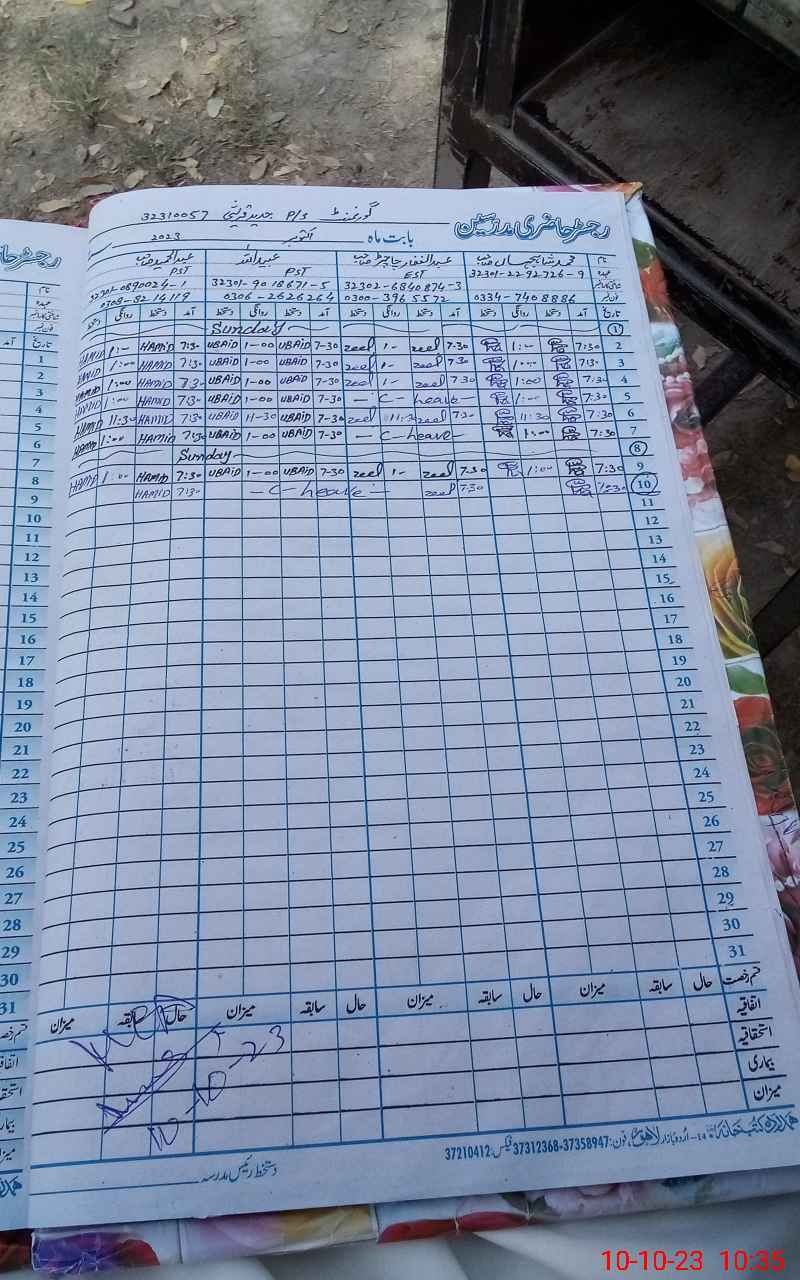 رجسٹر حاضری مدرسین
گورنمنٹ P/S جدید قریشی 32310057
بابت ماہ اکتوبر 2023
نام محمد شاہجہاں صاحب عبدالغفار چاچڑ صاحب عبید اللہ عبدالحمید صاحب
عہدہ EST PST PST
32301-22-92726-9 32302-6840874-3 32301-9018671-5 32301-0890024-1
فون نمبر 0334-7408886 0300-3965572 0306-2626264 0308-8214119
تاریخ آمد دستخط روانگی دستخط آمد دستخط روانگی دستخط آمد دستخط روانگی دستخط آمد دستخط روانگی دستخط
1 Sunday
2 7:30 1:00 7-30 zeel 1- zeel 7-30 UBAID 1-00 UBAID 7:30 HAMID 1:00 HAMID
3 7:30 1:00 7-30 zeel 1- zeel 7-30 UBAID 1-00 UBAID 7:30 HAMID 1:00 HAMID
4 7:30 1:00 7-30 zeel 1- zeel 7-30 UBAID 1-00 UBAID 7:30 HAMID 1:00 HAMID
5 7:30 1:00 - C- leave - 7-30 UBAID 1-00 UBAID 7:30 HAMID 1:00 HAMID
6 7:30 11:30 7-30 zeel 11:30 zeel 7-30 UBAID 11-30 UBAID 7:30 HAMID 11:30 HAMID
7 7:30 1:00 - C- leave - 7-30 UBAID 1-00 UBAID 7:30 HAMID 1:00 HAMID
8 Sunday
9 7:30 1:00 7-30 zeel 1- zeel 7-30 UBAID 1-00 UBAID 7:30 HAMID 1:00 HAMID
10 7:30 7-30 zeel - C- leave - 7:30 HAMID
11
12
13
14
15
16
17
18
19
20
21
22
23
24
25
26
27
28
29
30
31
قسم رخصت حال سابقہ میزان حال سابقہ میزان حال سابقہ میزان حال سابقہ میزان
اتفاقیہ
استحقاقیہ
بیماری
میزان
10-10-23
ہمدرد کتب خانہ 14- اردو بازار لاہور، فون: 37358947-37312368 فیکس: 37210412
دستخط رئیس مدرسہ
10-10-23 10:35